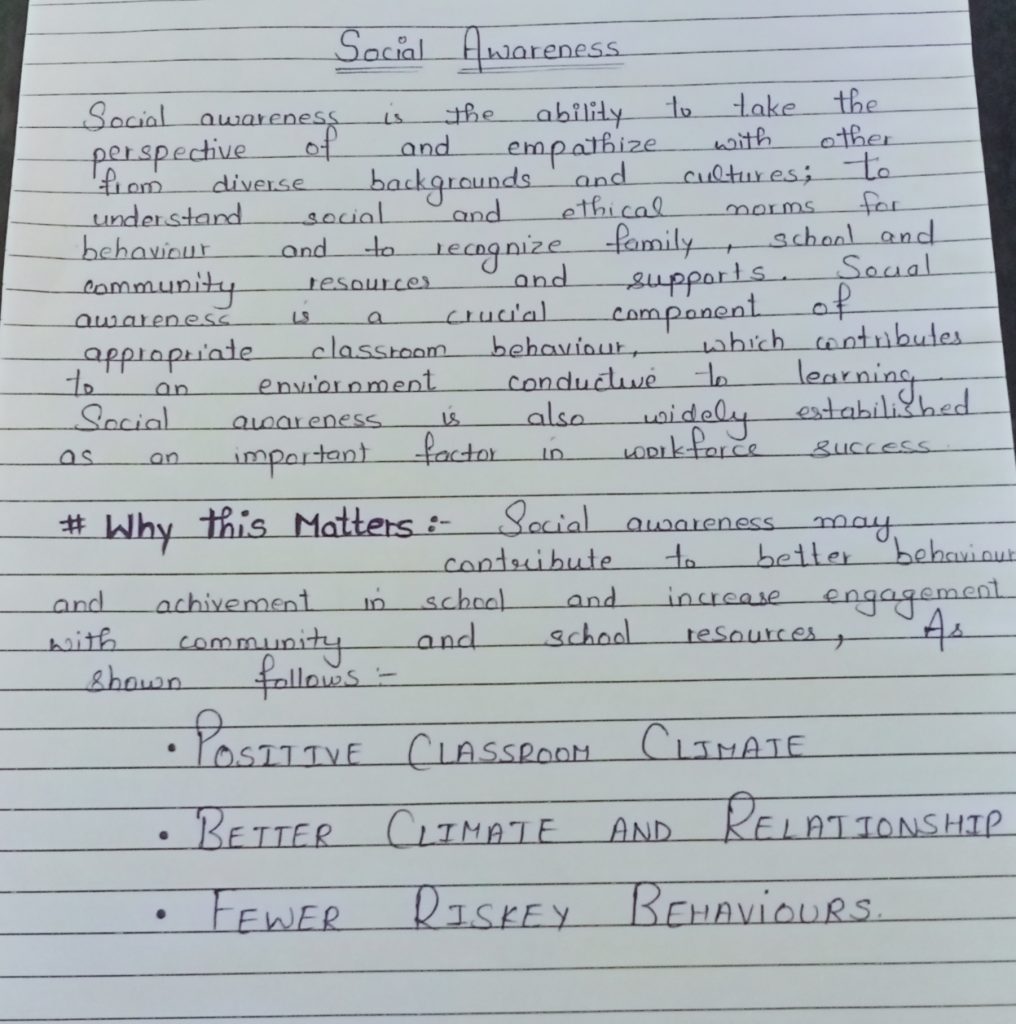 Social Awareness
Social awareness is the ability to take the
perspective of and empathize with other
from diverse backgrounds and cultures; to
understand social and ethical norms for
behaviour and to recognize family, school and
community resources and supports. Social
awareness is a crucial component of
appropriate classroom behaviour, which contributes
to an enviornment conductive to learning
Social awareness is also widely estabilished
as an important factor in workforce success
# Why this Matters :- Social awareness may
contribute to better behaviour
and achivement in school and increase engagement
with community and school resources, As
shown follows :-
• POSITIVE CLASSROOM CLIMATE
• BETTER CLIMATE AND RELATIONSHIP
• FEWER RISKEY BEHAVIOURS.